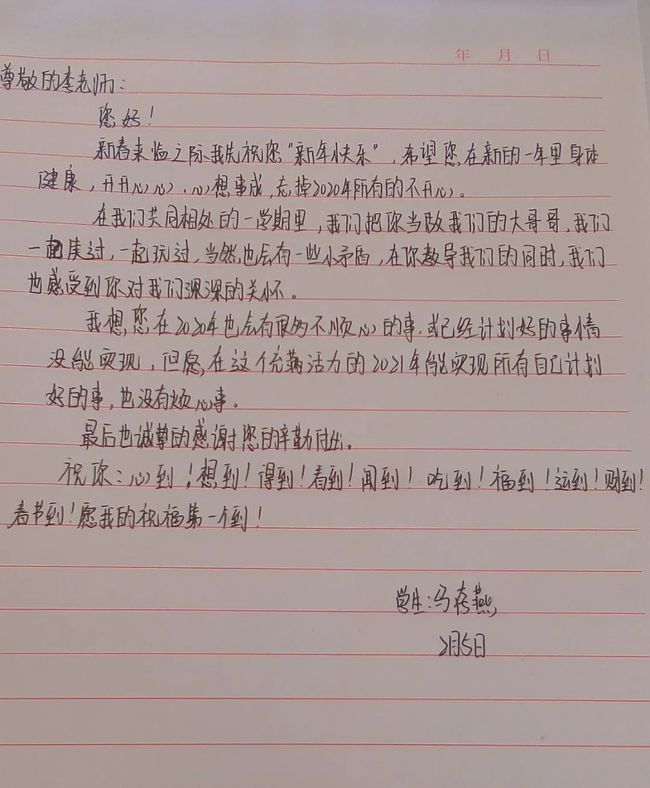 年 月 日
尊敬的李老师：
您好！
新春来临之际我先祝您“新年快乐”，希望您在新的一年里身体
健康，开开心心，心想事成，忘掉2020年所有的不开心。
在我们共同相处的一学期里，我们把你当做我们的大哥哥，我们
一起笑过，一起玩过，当然也会有一些小矛盾，在你教导我们的同时，我们
也感受到你对我们深深的关怀。
我想，您在2020年也会有很多不顺心的事，或已经计划好的事情
没能实现，但愿，在这个充满活力的2021年能实现所有自己计划
好的事，也没有烦心事。
最后也诚挚的感谢您的辛勤付出。
祝你：心到！想到！得到！看到！闻到！吃到！福到！运到！财到！
春节到！愿我的祝福第一个到！
学生：马存燕
2月5日